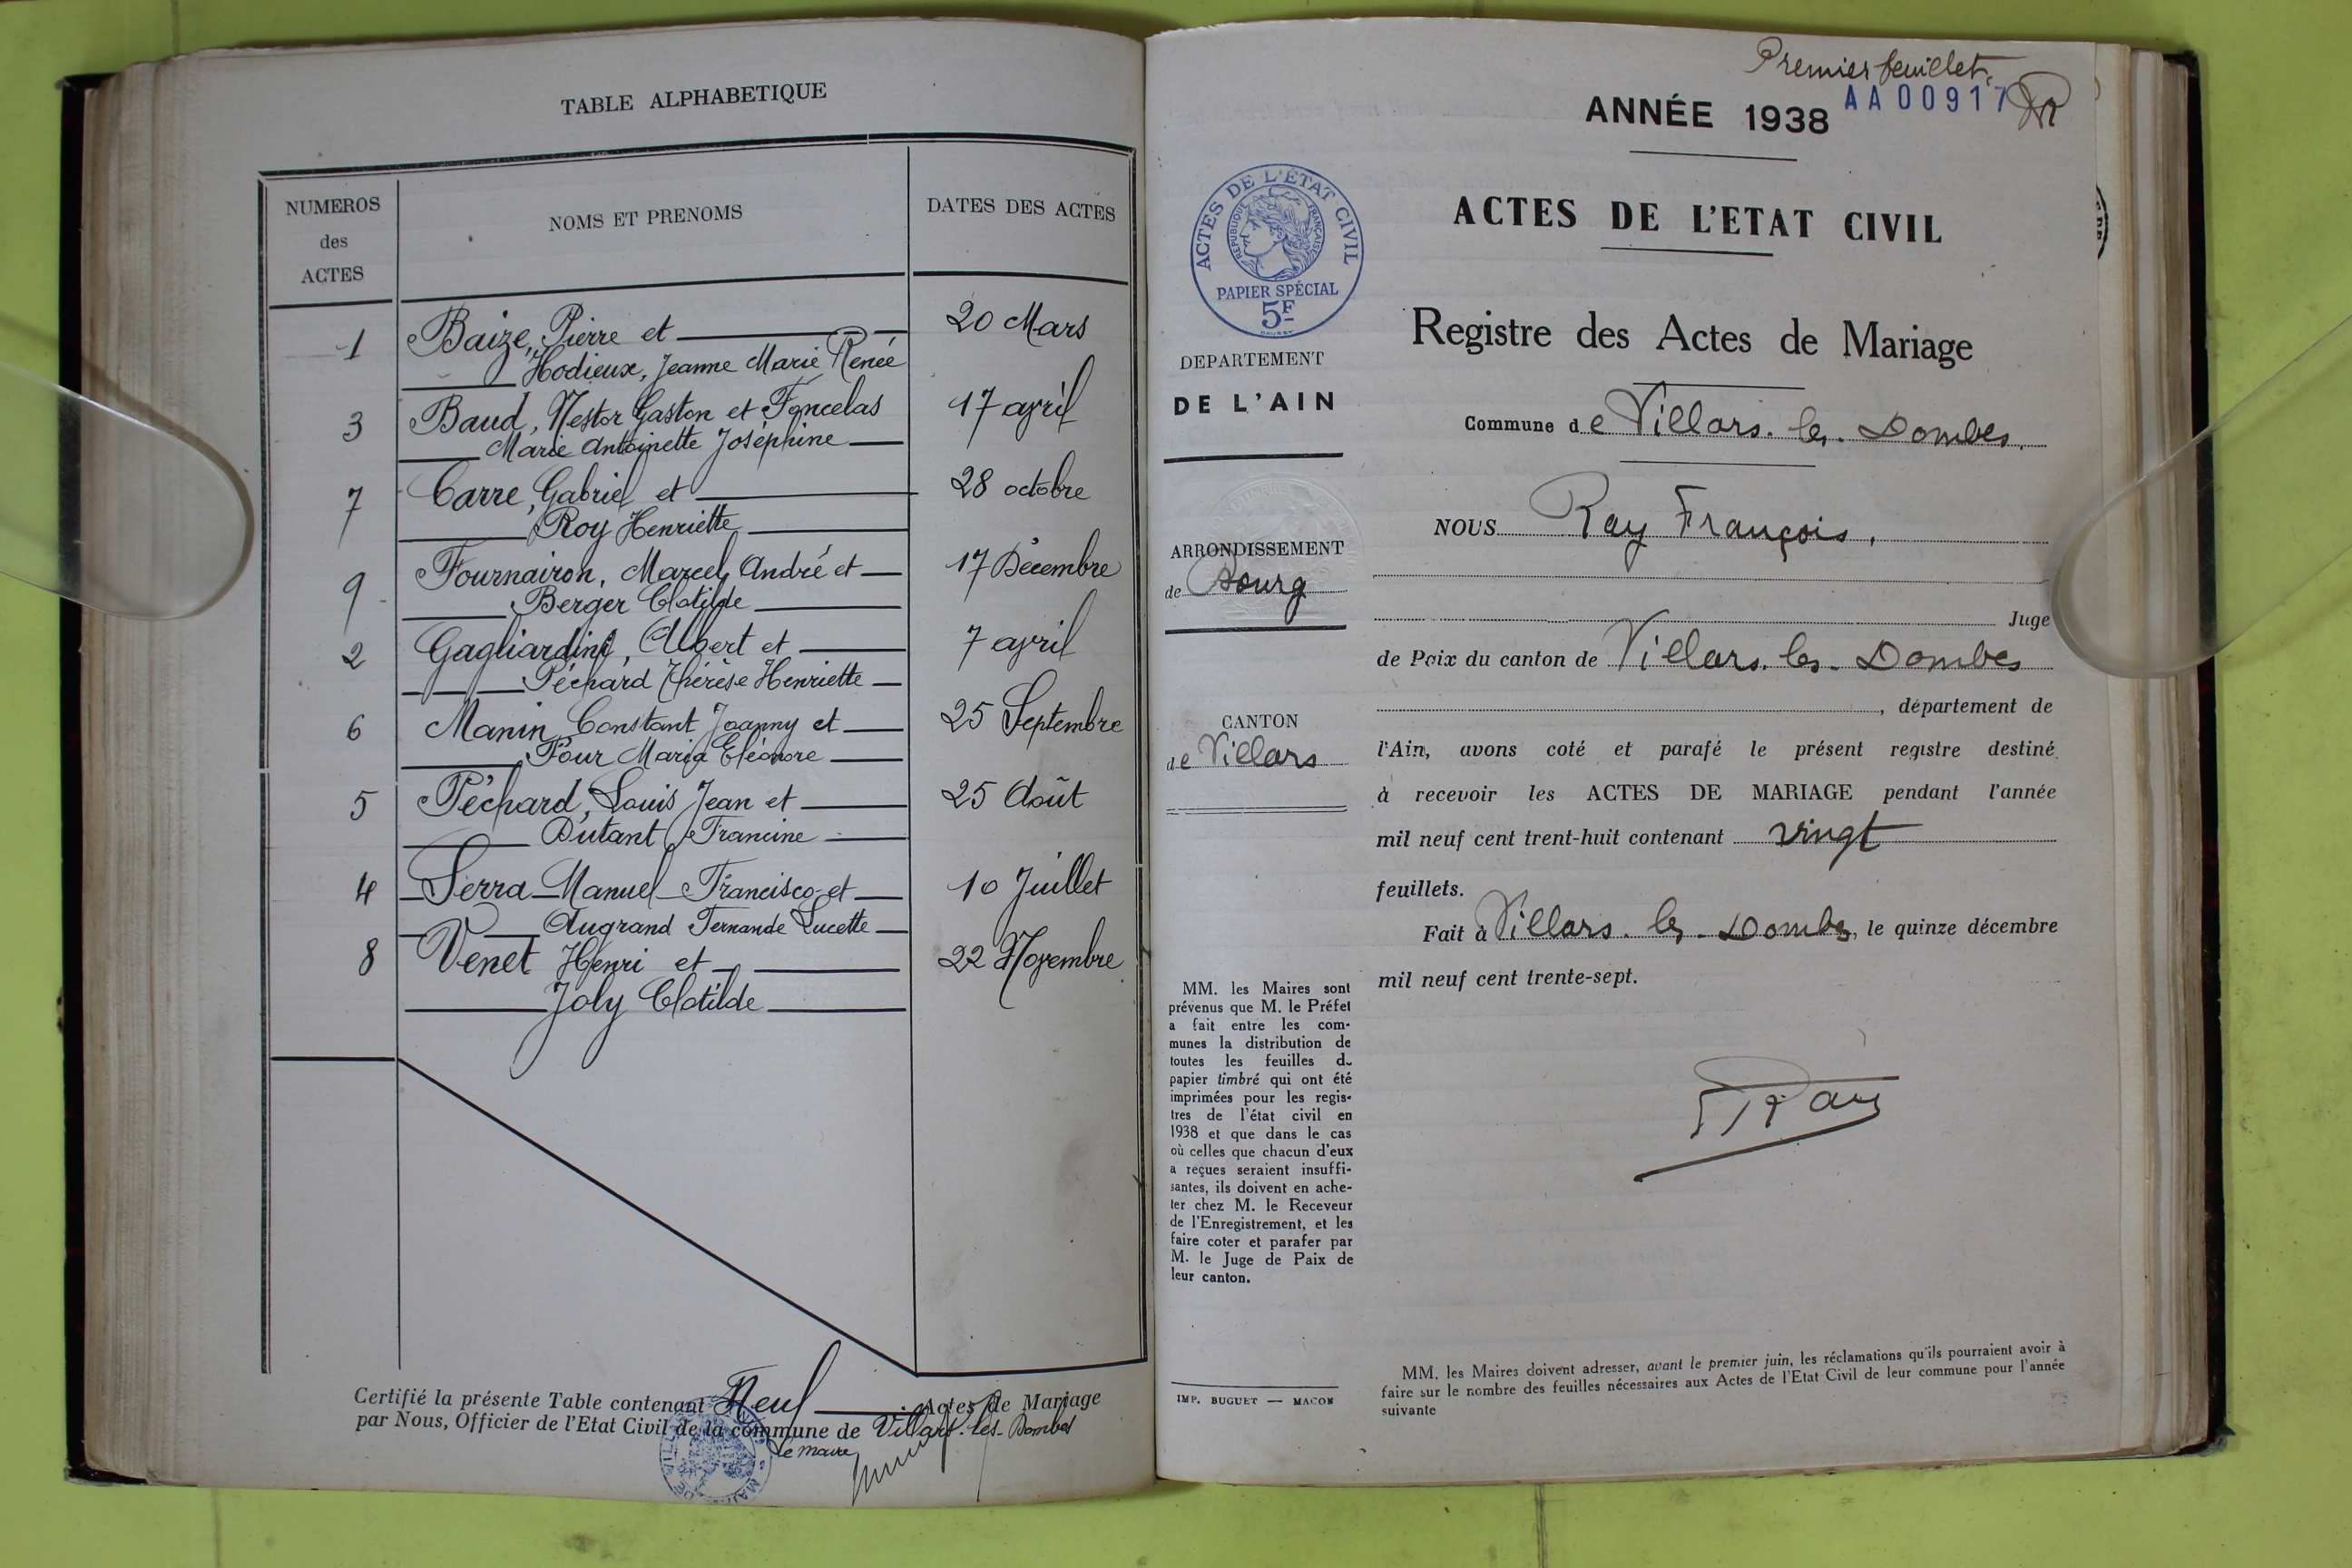 TABLE ALPHABETIQUE
NUMEROS
des
ACTES
NOMS ET PRENOMS
DATES DES ACTES
1 Baize, Pierre et 20 Mars
Hodieux, Jeanne Marie Renée
3 Baud, Nestor Gaston et Foncelas 17 avril
Marie Antoinette Joséphine
7 Carre, Gabriel et 28 octobre
Roy Henriette
9 Fournairon, Marcel, André et 17 Décembre
Berger Clotilde
2 Gagliardini, Albert et 7 avril
Péchard Thérèse Henriette
6 Manin Constant Joanny et 25 Septembre
Four Maria Eléonore
5 Péchard, Louis Jean et 25 Août
Dutant Francine
4 Serra Manuel Francisco et 10 Juillet
Augrand Fernande Lucette
8 Venet Henri et 22 Novembre
Joly Clotilde
Certifié la présente Table contenant Neuf Actes de Mariage
par Nous, Officier de l'Etat Civil de la commune de Villars-les-Dombes
Le maire
Premier feuillet.
AA00917
ANNÉE 1938
ACTES DE L'ÉTAT CIVIL
RÉPUBLIQUE FRANÇAISE
PAPIER SPÉCIAL
5F
ACTES DE L'ETAT CIVIL
Registre des Actes de Mariage
DEPARTEMENT
DE L'AIN
ARRONDISSEMENT
de Bourg
CANTON
de Villars
Commune de Villars-les-Dombes.
NOUS Ray François,
Juge
de Paix du canton de Villars-les-Dombes
, département de
l'Ain, avons coté et parafé le présent registre destiné
à recevoir les ACTES DE MARIAGE pendant l'année
mil neuf cent trent-huit contenant vingt
feuillets.
Fait à Villars-les-Dombes, le quinze décembre
mil neuf cent trente-sept.
MM. les Maires sont
prévenus que M. le Préfet
a fait entre les com-
munes la distribution de
toutes les feuilles de
papier timbré qui ont été
imprimées pour les regis-
tres de l'état civil en
1938 et que dans le cas
où celles que chacun d'eux
a reçues seraient insuffi-
santes, ils doivent en ache-
ter chez M. le Receveur
de l'Enregistrement, et les
faire coter et parafer par
M. le Juge de Paix de
leur canton.
IMP. BUGUET — MACON
MM. les Maires doivent adresser, avant le premier juin, les réclamations qu'ils pourraient avoir à
faire sur le nombre des feuilles nécessaires aux Actes de l'Etat Civil de leur commune pour l'année
suivante